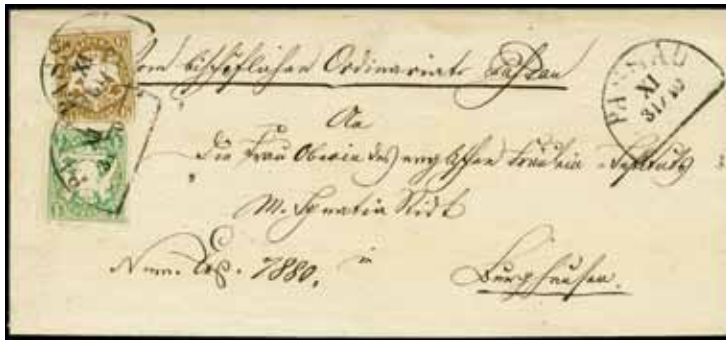 Vom bischöflichen Ordinariate Passau
PASSAU
XI
31/10
An
die Frau Oberin des englischen Fräulein-Instituts
M. Ignatia
Num. Exp. 7880.
in
Burghausen.